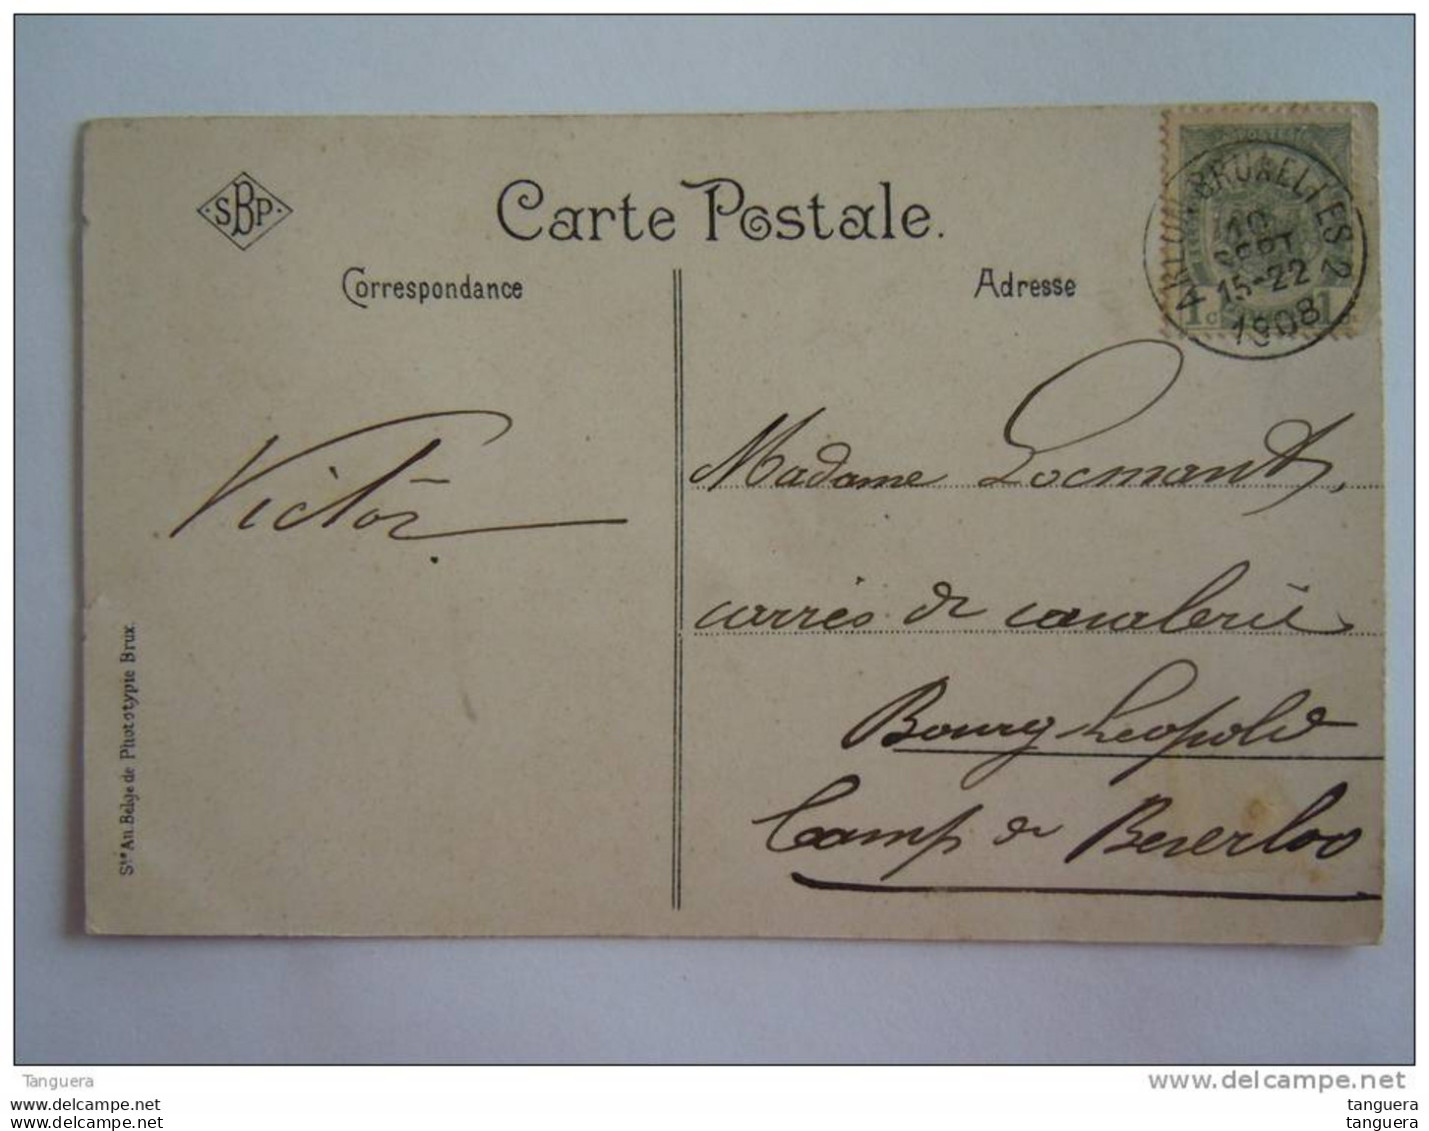 SBP
Carte Postale.
Correspondance
Adresse
ARLON-BRUXELLES 2
10
SEPT
15-22
1908
1c 1
Victor
Madame Locmant,
carrés de cavalerie
Bourg Léopold
Camp de Beverloo
Sté An. Belge de Phototypie Brux.
Tanguera
www.delcampe.net
tanguera
tanguera
tanguera
tanguera